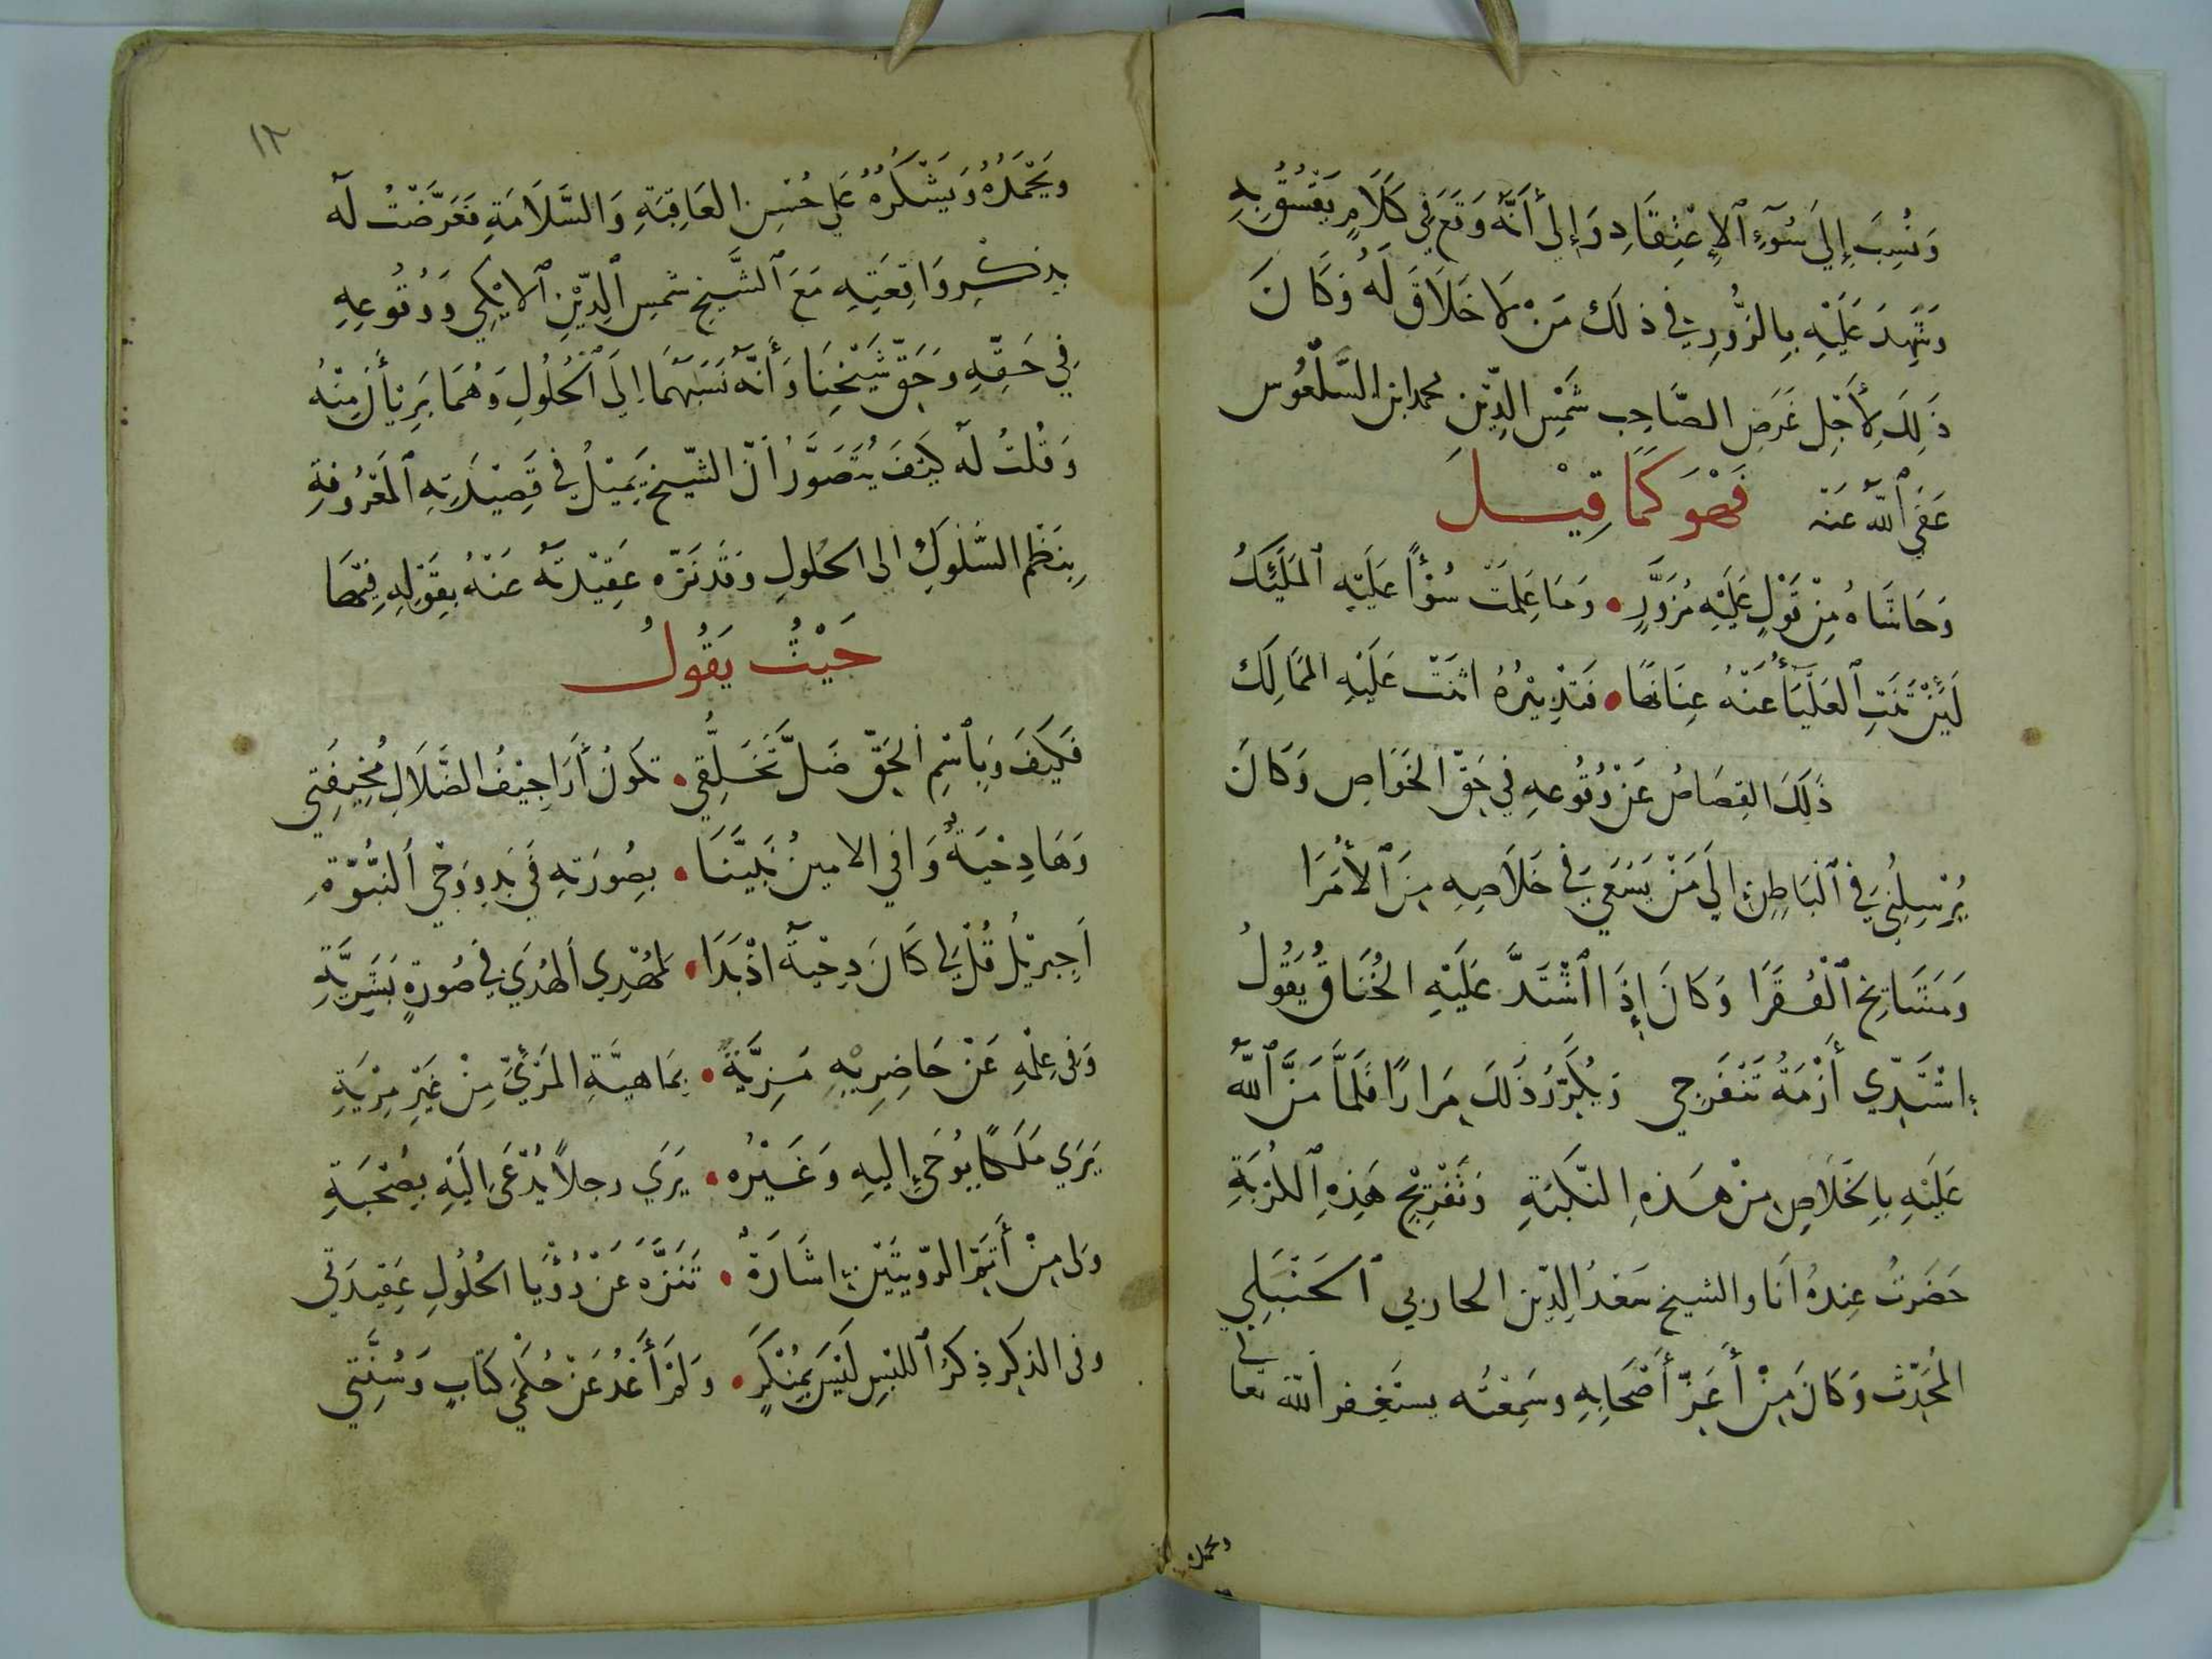 وَنُسِبَ إِلَي سُوٓءِ ٱلإِعْتِقَادِ وَإِلي أَنَّهُ وَقَعَ فِي كَلَامٍ يَفْسُقُ بِهِ
وَشَهِدَ عَلَيْهِ بِالزُّورِ في ذلك مَنْ لَا خَلَاقَ لَهُ وَكَانَ
ذَلِكَ لِأَجْلِ غَرَضِ الصَّاحِب شَمْسِ الدِّينِ محمد ابن السَّلْعُوس
عَفَي ٱللَّهُ عَنْهُ فَهْوَ كَمَا قِيْل
وَحَاشَاهُ مِنْ قَوْلٍ عَلَيْهِ مُزَوَّرٍ • وَمَا عَلِمَتْ سُوْأً عَلَيْهِ ٱلمَلَئِكُ
لَئِنْ ثَنَتِ ٱلعَلْيَآءُ عَنْهُ عِنَانَهَا • فَتَدْبِيْرُهُ اثنَتْ عَلَيْهِ المَمَالِكُ
ذَلِكَ القِصَاصُ عَنْ وُقُوعِهِ فِي حَقِّ الخَوَاصِ وَكَانَ
يُرْسِلُنِي فِي ٱلْبَاطِنِ إِلي مَنْ يَسْعَي فِي خَلَاصِهِ مِنَ ٱلأُمَرَا
وَمَشَايخ ٱلْفُقَرَا وَكَانَ إِذَا ٱشْتَدَّ عَلَيْهِ الخُنَاقُ يَقُولُ
إِشْتَدِّي أَزْمَةُ تَنْفَرِجي وَيُكَرِّرُ ذَلكَ مِرَارًا فَلَمَّا مَنَّ ٱللَّهُ
عَلَيْهِ بِالخَلَاصِ مِنْ هَذِهِ النَّكْبَةِ وَتَفْرِيْجِ هَذِهِ ٱلكُرْبَةِ
حَضَرْتُ عِندَهُ أنَا والشيخ سَعْدُ الدِّين الحاربي ٱلحَنْبَلِي
المُحَدِّث وَكَانَ مِنْ أَعَزِّ أَصْحَابِهِ وسَمِعْتُه يستَغْفِر اللهَ تعالى
ويحمده
١٢
وَيَحْمَدُهُ وَيَشْكُرُهُ عَلي حُسْنِ العَاقِبَةِ وَالسَّلَامَةِ فَعَرَّضْتُ لَه
بِذِكْرِ وَاقِعَتِهِ مَعَ ٱلشَّيخِ شمسِ ٱلدِّيْنِ ٱلايْكِي وَوُقُوعِهِ
فِي حَقِّهِ وَحَقِّ شَيْخِنَا وَأَنَّهُ نَسَبَهُمَا إِلَي ٱلحُلُولِ وَهُمَا بَرِيْأَنِ مِنْهُ
وَقُلْتُ لَه كَيْفَ يُتَصَوَّرُ أنَّ الشّيخ يَمِيْلُ في قَصِيْدَتِهِ ٱلمَعْرُوفَةِ
بِنَظْمِ السُّلُوكِ إلى الحُلُولِ وَقَدْ نَزَّه عَقِيْدتَهُ عَنْهُ بِقَوْلِهِ فِيْهَا
حَيْثُ يَقُولُ
فَكَيْفَ وَبِٱسْمِ الحَقِّ ضَلَّ تَخَلُّقِي • تكونُ أَرَاجِيْفُ الضَّلَالِ مُخِيفَتِي
وَهَا دِحْيَةٌ وَافي الامينُ نَبِيَّنَا • بِصُورَتِهِ فِي بَدِو وَحْي ٱلنُّبُوَّةِ
أَجِبْرِيْلُ قُلْ لِي كَانَ دِحْيَةُ اذْ بَدَا • لِمَهْدِي الهُدَي فِي صُورَةٍ بَشَرِيَّةِ
وَفي عِلْمِهِ عَنْ حَاضِرِيْهِ مَزِيَّةٌ • بِمَاهِيَّةِ المَرْئِيِّ مِنْ غَيْرِ مِرْيَةِ
يَرَي مَلَكًا يُوحَيٰ إليهِ وَغَيْرُه • يَرَي رجلاً يُدْعَى اليهِ بِصُحْبَةِ
ولى مِنْ أَتَمِّ الرّويتَيْنِ اشَارَةٌ • تَنَزَّهَ عَنْ رُؤْيَا الحُلُولِ عَقِيدَتي
وفى الذكِر ذِكرُ ٱللبْسِ لَيْسَ بِمُنْكَرٍ • وَلَمْ أَعْدُ عَنْ حُكْمَيْ كتَابٍ وَسُنَّتي